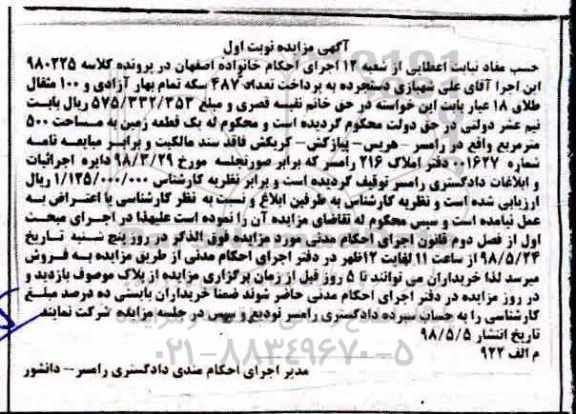 آگهی مزایده نوبت اول
حسب مفاد نیابت اعطایی از شعبه ۱۲ اجرای احکام خانواده اصفهان در پرونده کلاسه ۹۸۰۲۲۵
این اجرا آقای علی شهبازی دستجرده به پرداخت تعداد ۴۸۷ سکه تمام بهار آزادی و ۱۰۰ مثقال
طلای ۱۸ عیار بابت این خواسته در حق خانم نفیسه قصری و مبلغ ۵۷۵/۳۳۲/۳۵۳ ریال بابت
نیم عشر دولتی در حق دولت محکوم گردیده است و محکوم له یک قطعه زمین به مساحت ۵۰۰
مترمربع واقع در رامسر -هریس- پیازکش- کریکش فاقد سند مالکیت و برابر مبایعه نامه
شماره ۰۰۱۶۲۷ دفتر املاک ۲۱۶ رامسر که برابر صورتجلسه مورخ ۹۸/۳/۲۹ دایره اجرائیات
و ابلاغات دادگستری رامسر توقیف گردیده است و برابر نظریه کارشناس ۱/۱۲۵/۰۰۰/۰۰۰ ریال
ارزیابی شده است و نظریه کارشناس به طرفین ابلاغ و نسبت به نظر کارشناسی یا اعتراض به
عمل نیامده است و سپس محکوم له تقاضای مزایده آن را نموده است علیهذا در اجرای مبحث
اول از فصل دوم قانون اجرای احکام مدنی مورد مزایده فوق الذکر در روز پنج شنبه تاریخ
۹۸/۵/۲۴ از ساعت ۱۱ لغایت ۱۲ظهر در دفتر اجرای احکام مدنی از طریق مزایده به فروش
میرسد لذا خریداران می توانند تا ۵ روز قبل از زمان برگزاری مزایده از پلاک موصوف بازدید و
در روز مزایده در دفتر اجرای احکام مدنی حاضر شوند ضمنا خریداران بایستی ده درصد مبلغ
کارشناسی را به حساب سپرده دادگستری رامسر تودیع و سپس در جلسه مزایده شرکت نمایند
تاریخ انتشار ۹۸/۵/۵
م الف ۹۲۲
۰۲۱-۸۸۳۴۹۶۷۰-۵
مدیر اجرای احکام مدنی دادگستری رامسر-- دانشور